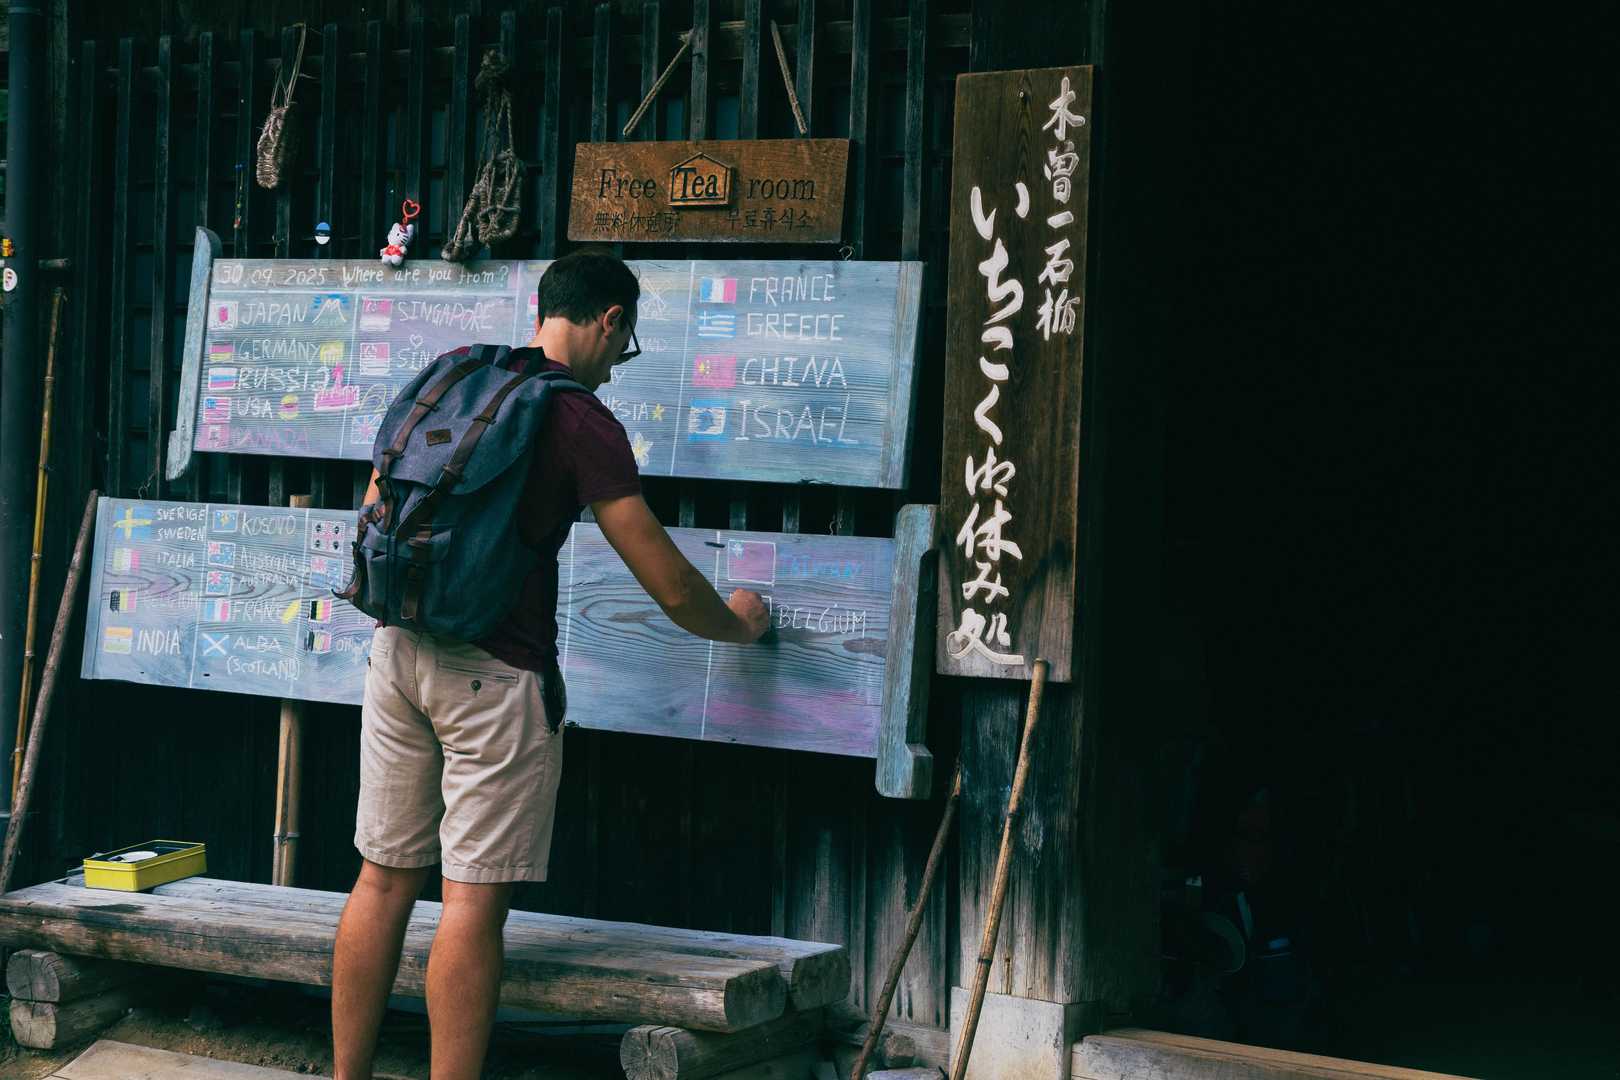 Free Tea room
無料休憩所 무료휴식소
木曽一石栃
いちこく御休み処
30.09.2025 Where are you from?
JAPAN
GERMANY
RUSSIA
USA
CANADA
SINGAPORE
FRANCE
GREECE
CHINA
ISRAEL
SVERIGE
SWEDEN
ITALIA
BELGIUM
INDIA
KOSOVO
Australia
AUSTRALIA
FRANCE
ALBA
(SCOTLAND)
TAIWAN
BELGIUM